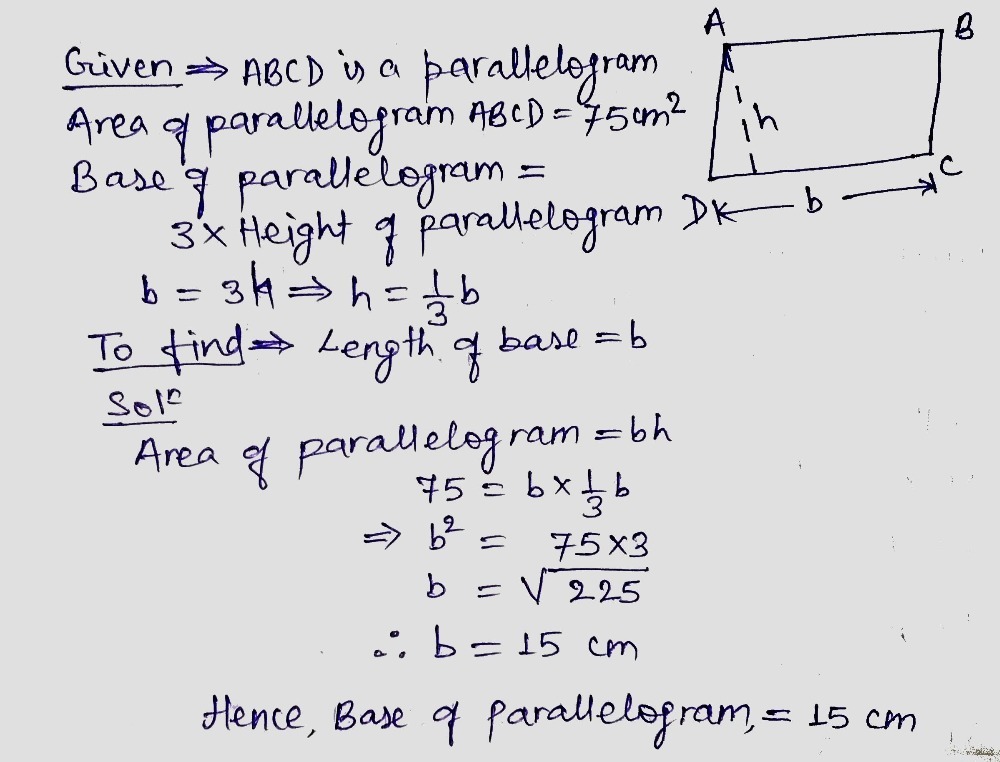 Given ⇒ ABCD is a parallelogram
Area of parallelogram ABCD = 75cm²
Base of parallelogram =
3 × Height of parallelogram
b = 3h ⇒ h = 1/3 b
To find ⇒ Length of base = b
Solⁿ
Area of parallelogram = bh
75 = b × 1/3 b
⇒ b² = 75×3
b = √225
∴ b = 15 cm
Hence, Base of parallelogram, = 15 cm
A
B
h
C
D
b